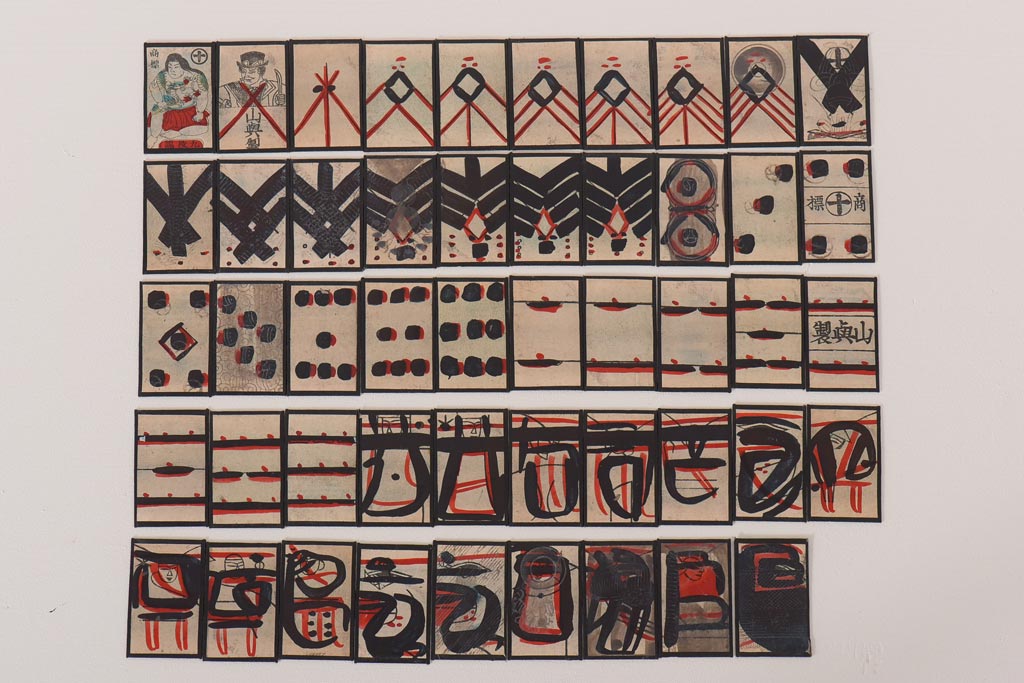 商標
山與製
標 商
製與山